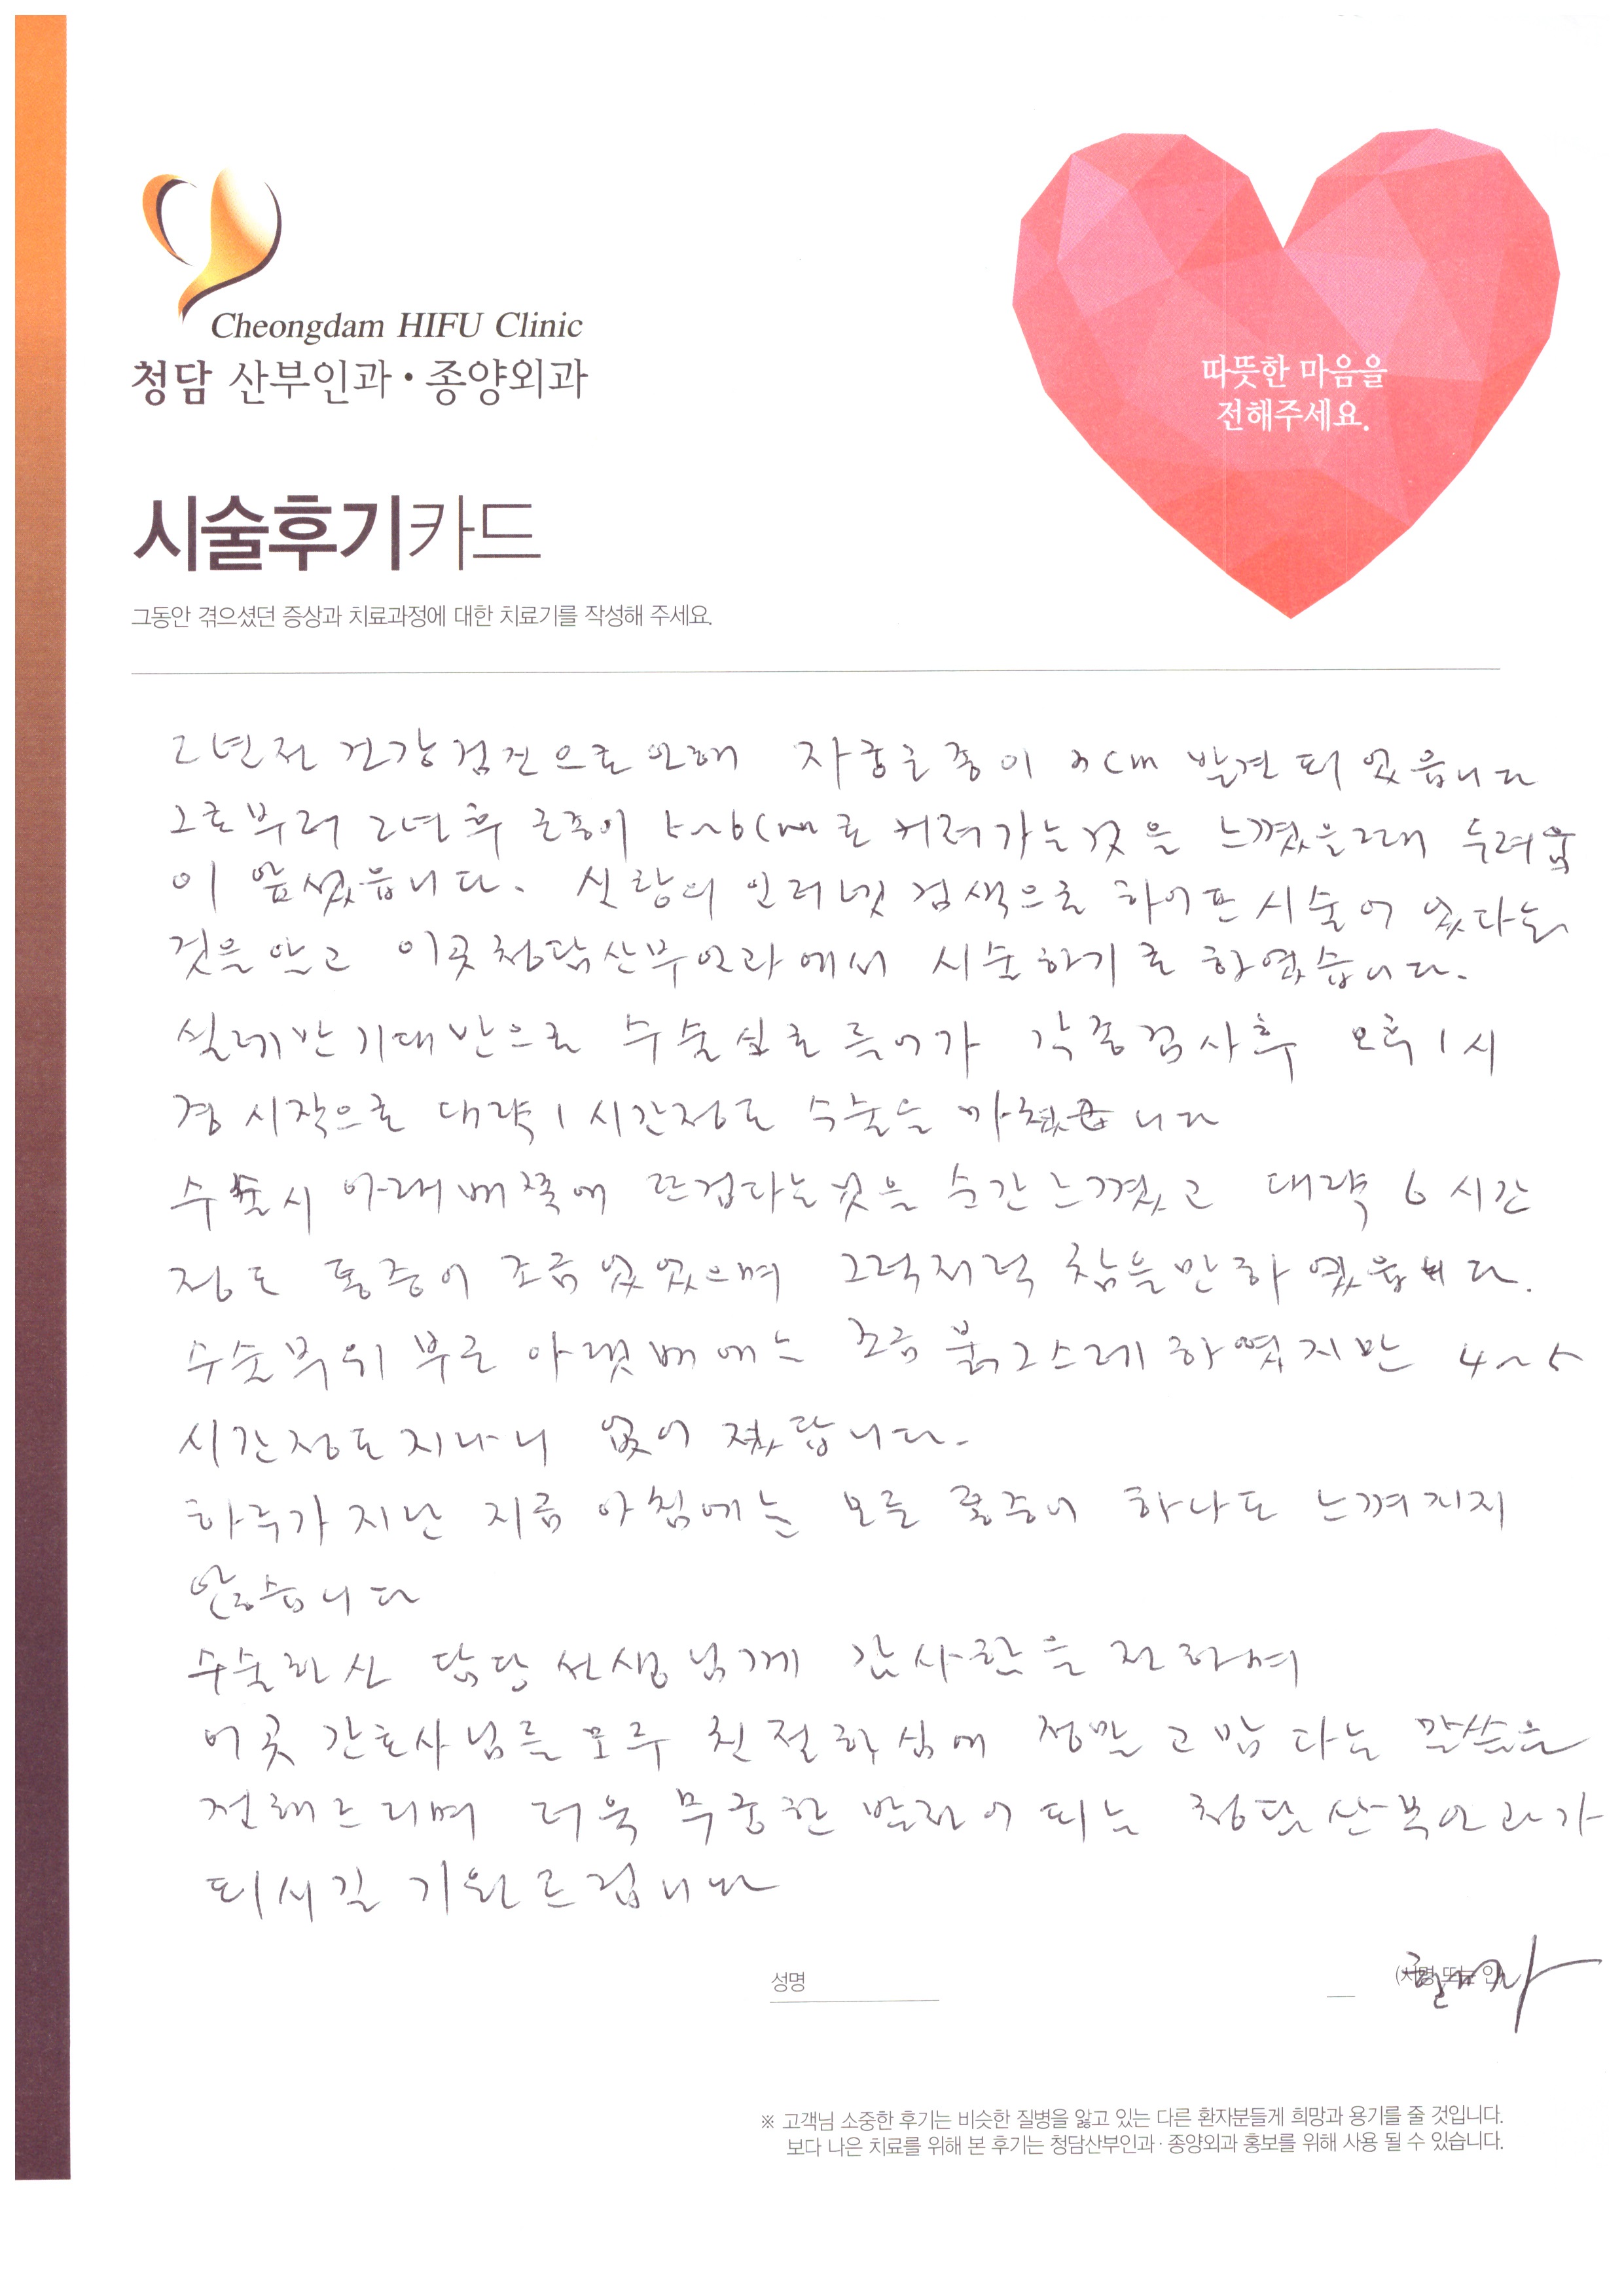 Cheongdam HIFU Clinic
청담 산부인과·종양외과
따뜻한 마음을
전해주세요.
시술후기카드
그동안 겪으셨던 증상과 치료과정에 대한 치료기를 작성해 주세요.
2년전 건강검진으로 인해 자궁근종이 3cm 발견 되었읍니다
그로부터 2년후 근종이 5~6cm로 커려가는것을 느꼈을때 두려움
이 앞섰읍니다. 신랑의 인터넷 검색으로 하이푸시술이 있다는
것을 알고 이곳 청담산부인과에서 시술하기로 하였습니다.
설레반 기대반으로 수술실로 들어가 각종검사후 오후 1시
경 시작으로 대략 1시간정도 수술을 마쳤읍니다
수술시 아래배쪽에 뜨겁다는것을 순간 느꼈고 대략 6시간
정도 통증이 조금 있었으며 그럭저럭 참을만하였읍니다.
수술부위 부근 아랫배에는 조금 붉그스레하였지만 4~5
시간정도 지나니 없어졌답니다.
하루가 지난 지금 아침에는 모든 통증이 하나도 느껴지지
않습니다
수술하신 담당선생님께 감사함을 전하며
이곳 간호사님들 모두 친절하심에 정말 고맙다는 말씀을
전해드리며 더욱 무궁한 발전이 되는 청담산부인과가
되시길 기원드립니다
성명
(서명 또는 인)
※ 고객님 소중한 후기는 비슷한 질병을 앓고 있는 다른 환자분들게 희망과 용기를 줄 것입니다.
보다 나은 치료를 위해 본 후기는 청담산부인과·종양외과 홍보를 위해 사용 될 수 있습니다.